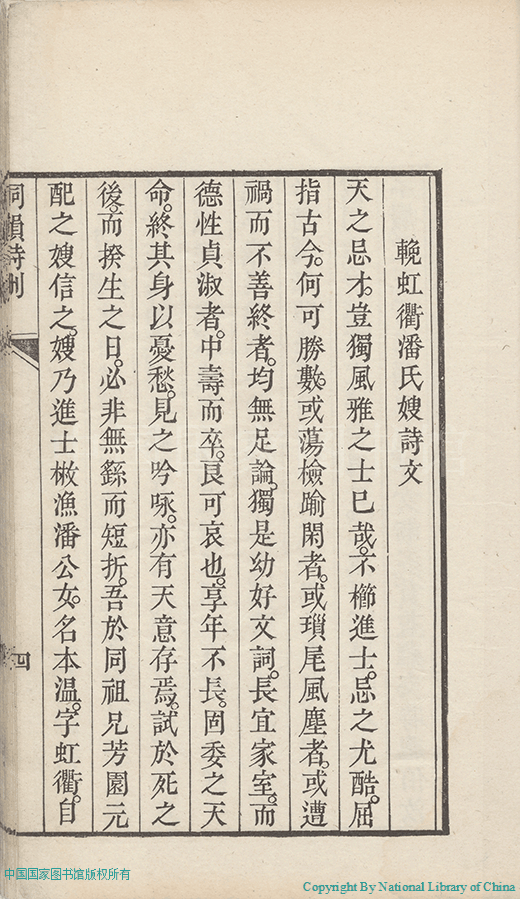 輓虹衢潘氏嫂詩文
天之忌才。豈獨風雅之士已哉。不櫛進士。忌之尤酷。屈
指古今。何可勝數。或蕩檢踰閑者。或瑣尾風塵者。或遭
禍而不善終者。均無足論。獨是幼好文詞。長宜家室。而
德性貞淑者。中壽而卒。良可哀也。享年不長。固委之天
命。終其身以憂愁。見之吟咏。亦有天意存焉。試於死之
後。而揆生之日。必非無繇而短折。吾於同祖兄芳園元
配之嫂信之。嫂乃進士楸漁潘公女。名本溫。字虹衢。自
同韻詩刋
四
中国国家图书馆版权所有
Copyright By National Library of China